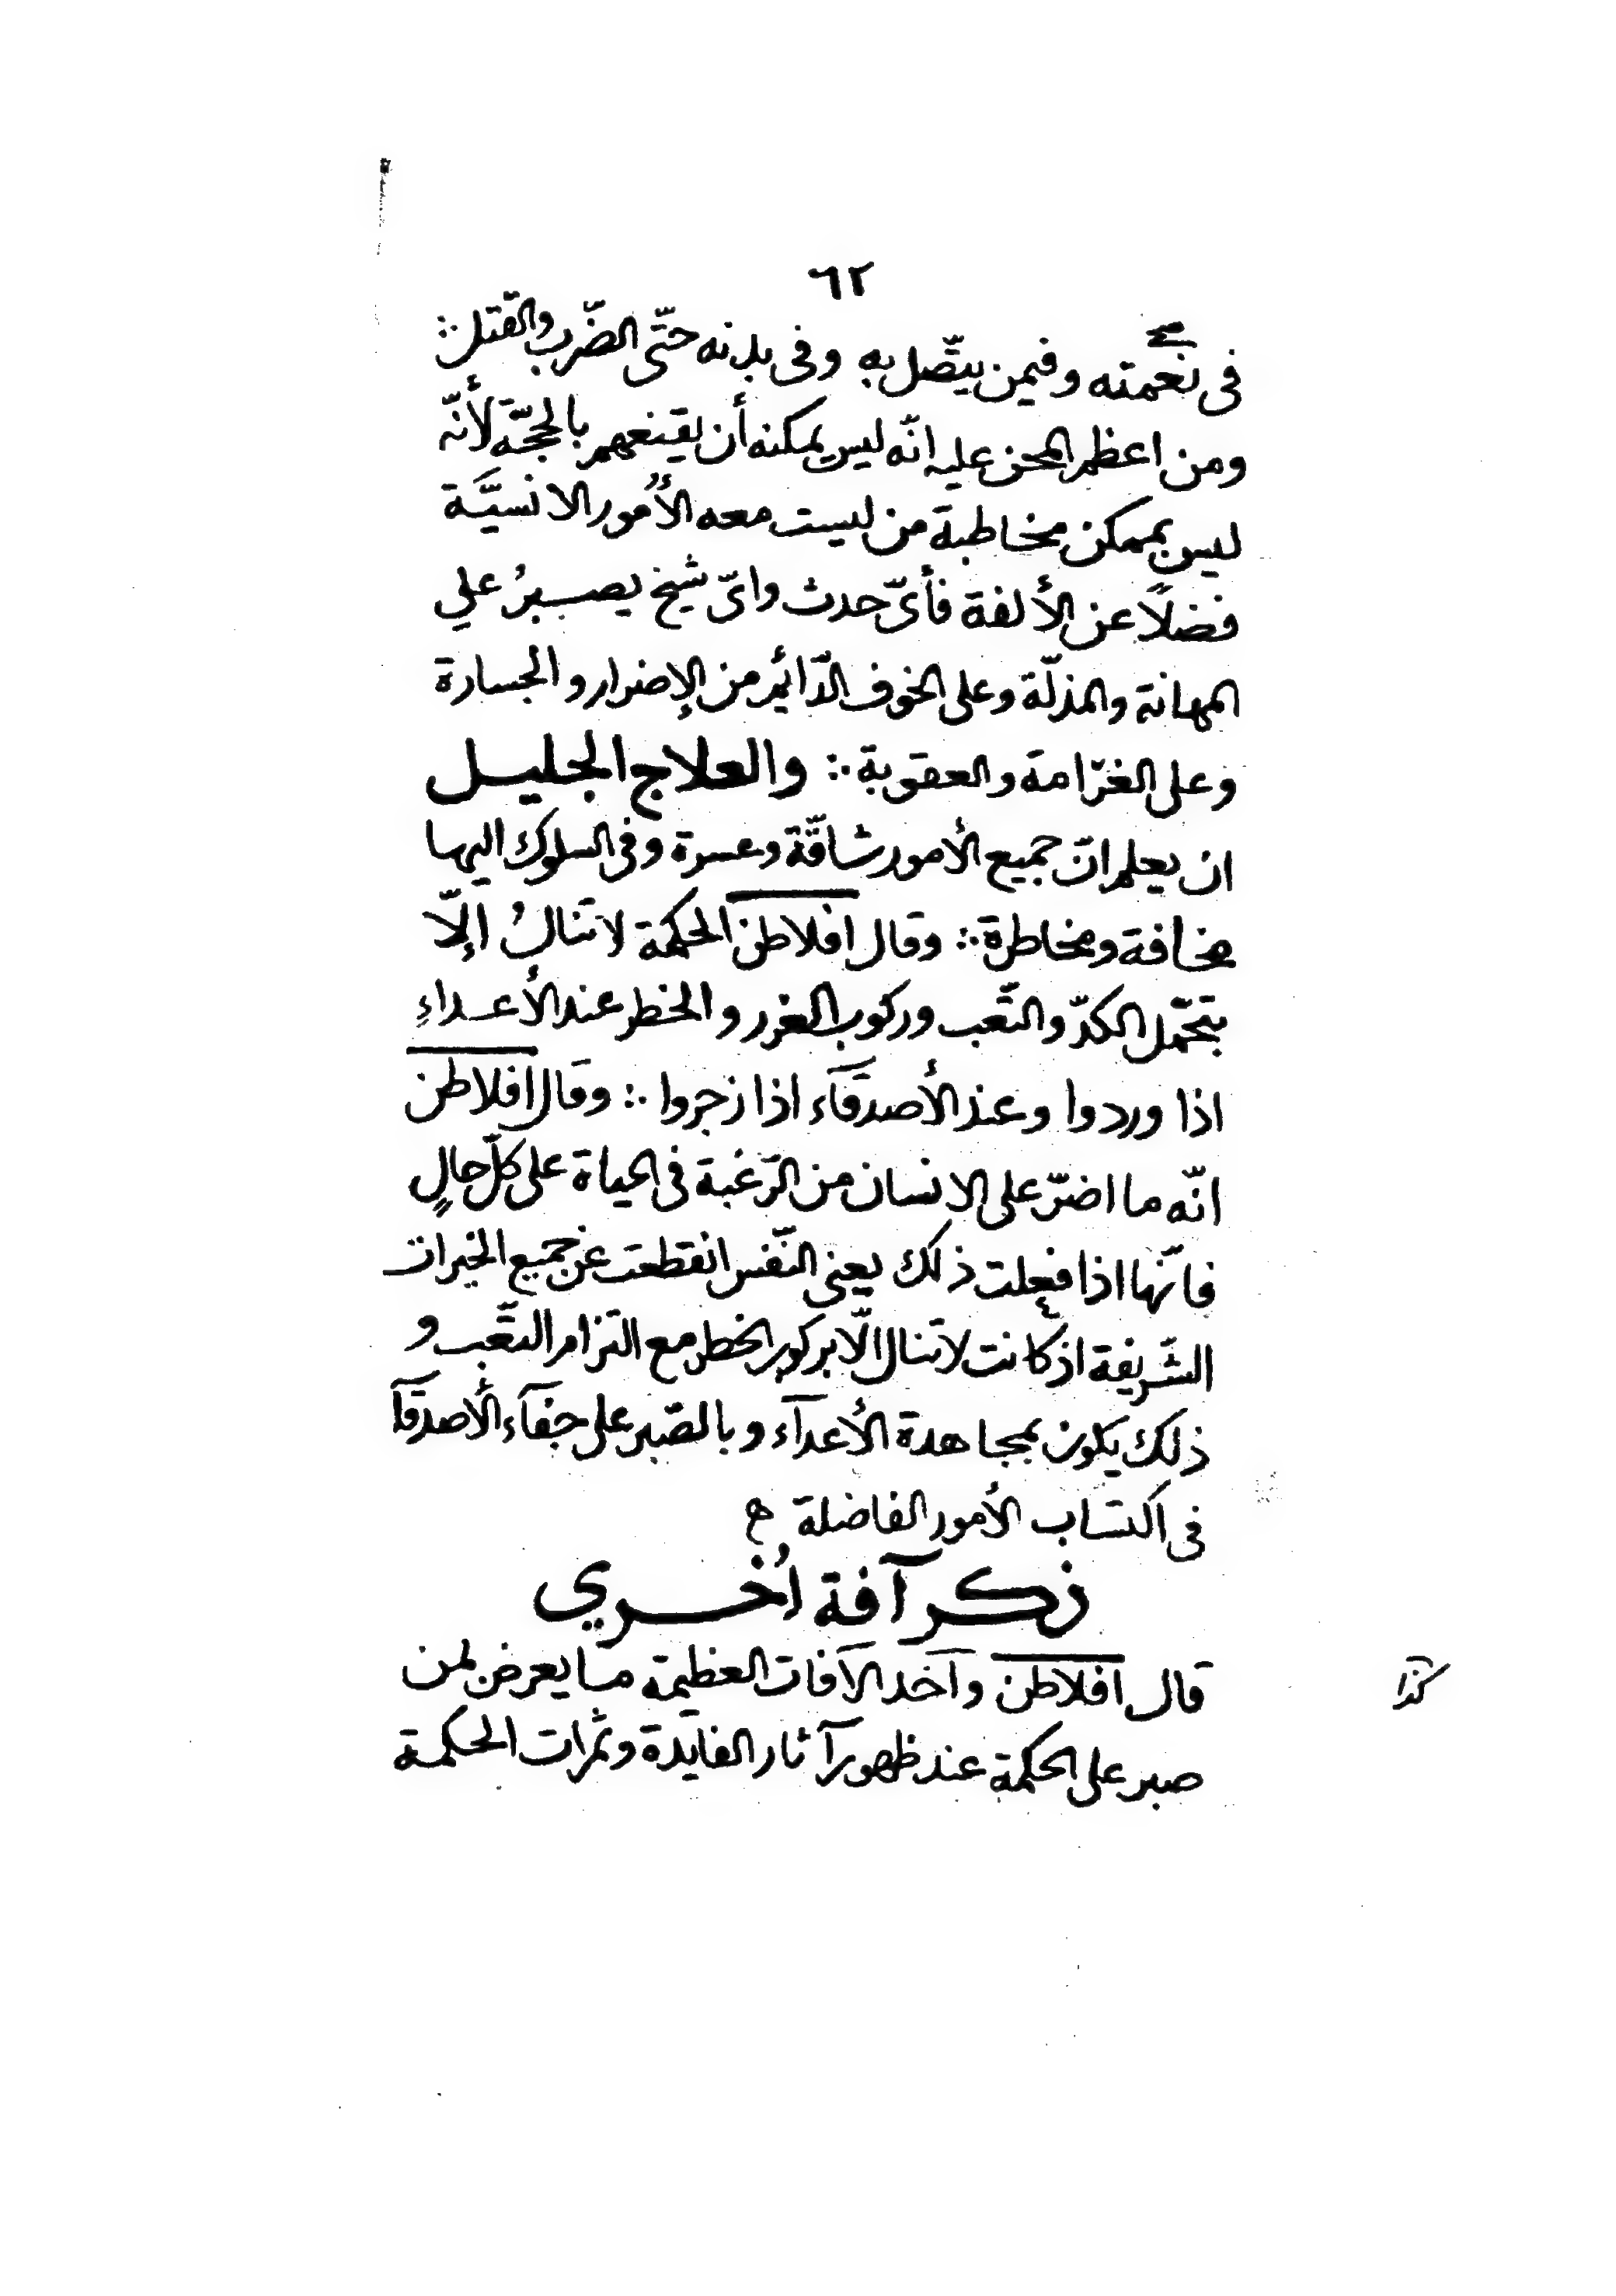 ٦٢
فى نعمته وفيمن يتّصل به وفى بدنه حتّى الضّرب والقتل ∴
ومن اعظم المحن عليه انّه ليس يمكنه أن يقنعهم بالحجّة لأنّه
ليس بممكن مخاطبة من ليست معه الأُمور الانسيَّة
فضلًا عن الألفة فأىّ حدث واىّ شيخ يصبرُ علي
المهانة والمذلّة وعلى الخوف الدّائم من الإضرار والجسارة
وعلى الغرّامة والعقوبة ∴ والعلاج الجليل
ان يعلم انّ جميع الأمور شاقّة وعسرة وفى السلوك اليها
مخافة ومخاطرة ∴ وقال افلاطن الحكمة لا تنالُ إلّا
بتحمّل الكدّ والتّعب وركوب الغرر والخطر عند الأعداءِ
اذا وردوا وعند الأصدقآء اذا زجروا ∴ وقال افلاطن
انّه ما اضرّ على الانسان من الرّغبة فى الحياة على كلّ حالٍ
فانّها اذا فعلت ذلك يعنى النّفس انقطعت عن جميع الخيرات
الشّريفة اذ كانت لا تنال الّا بركوب الخطر مع التزام التّعب و
ذلك يكون بمجاهدة الأعدآء وبالصّبر على جفآء الأصدقآ
فى اكتساب الأمور الفاضلة ه
ذكر آفة اُخري
قال افلاطن وآخد الآفات العظيمة ما يعرض لمن
كذا
صبر على الحكمة عند ظهور آثار الفايدة وثمرات الحكمة